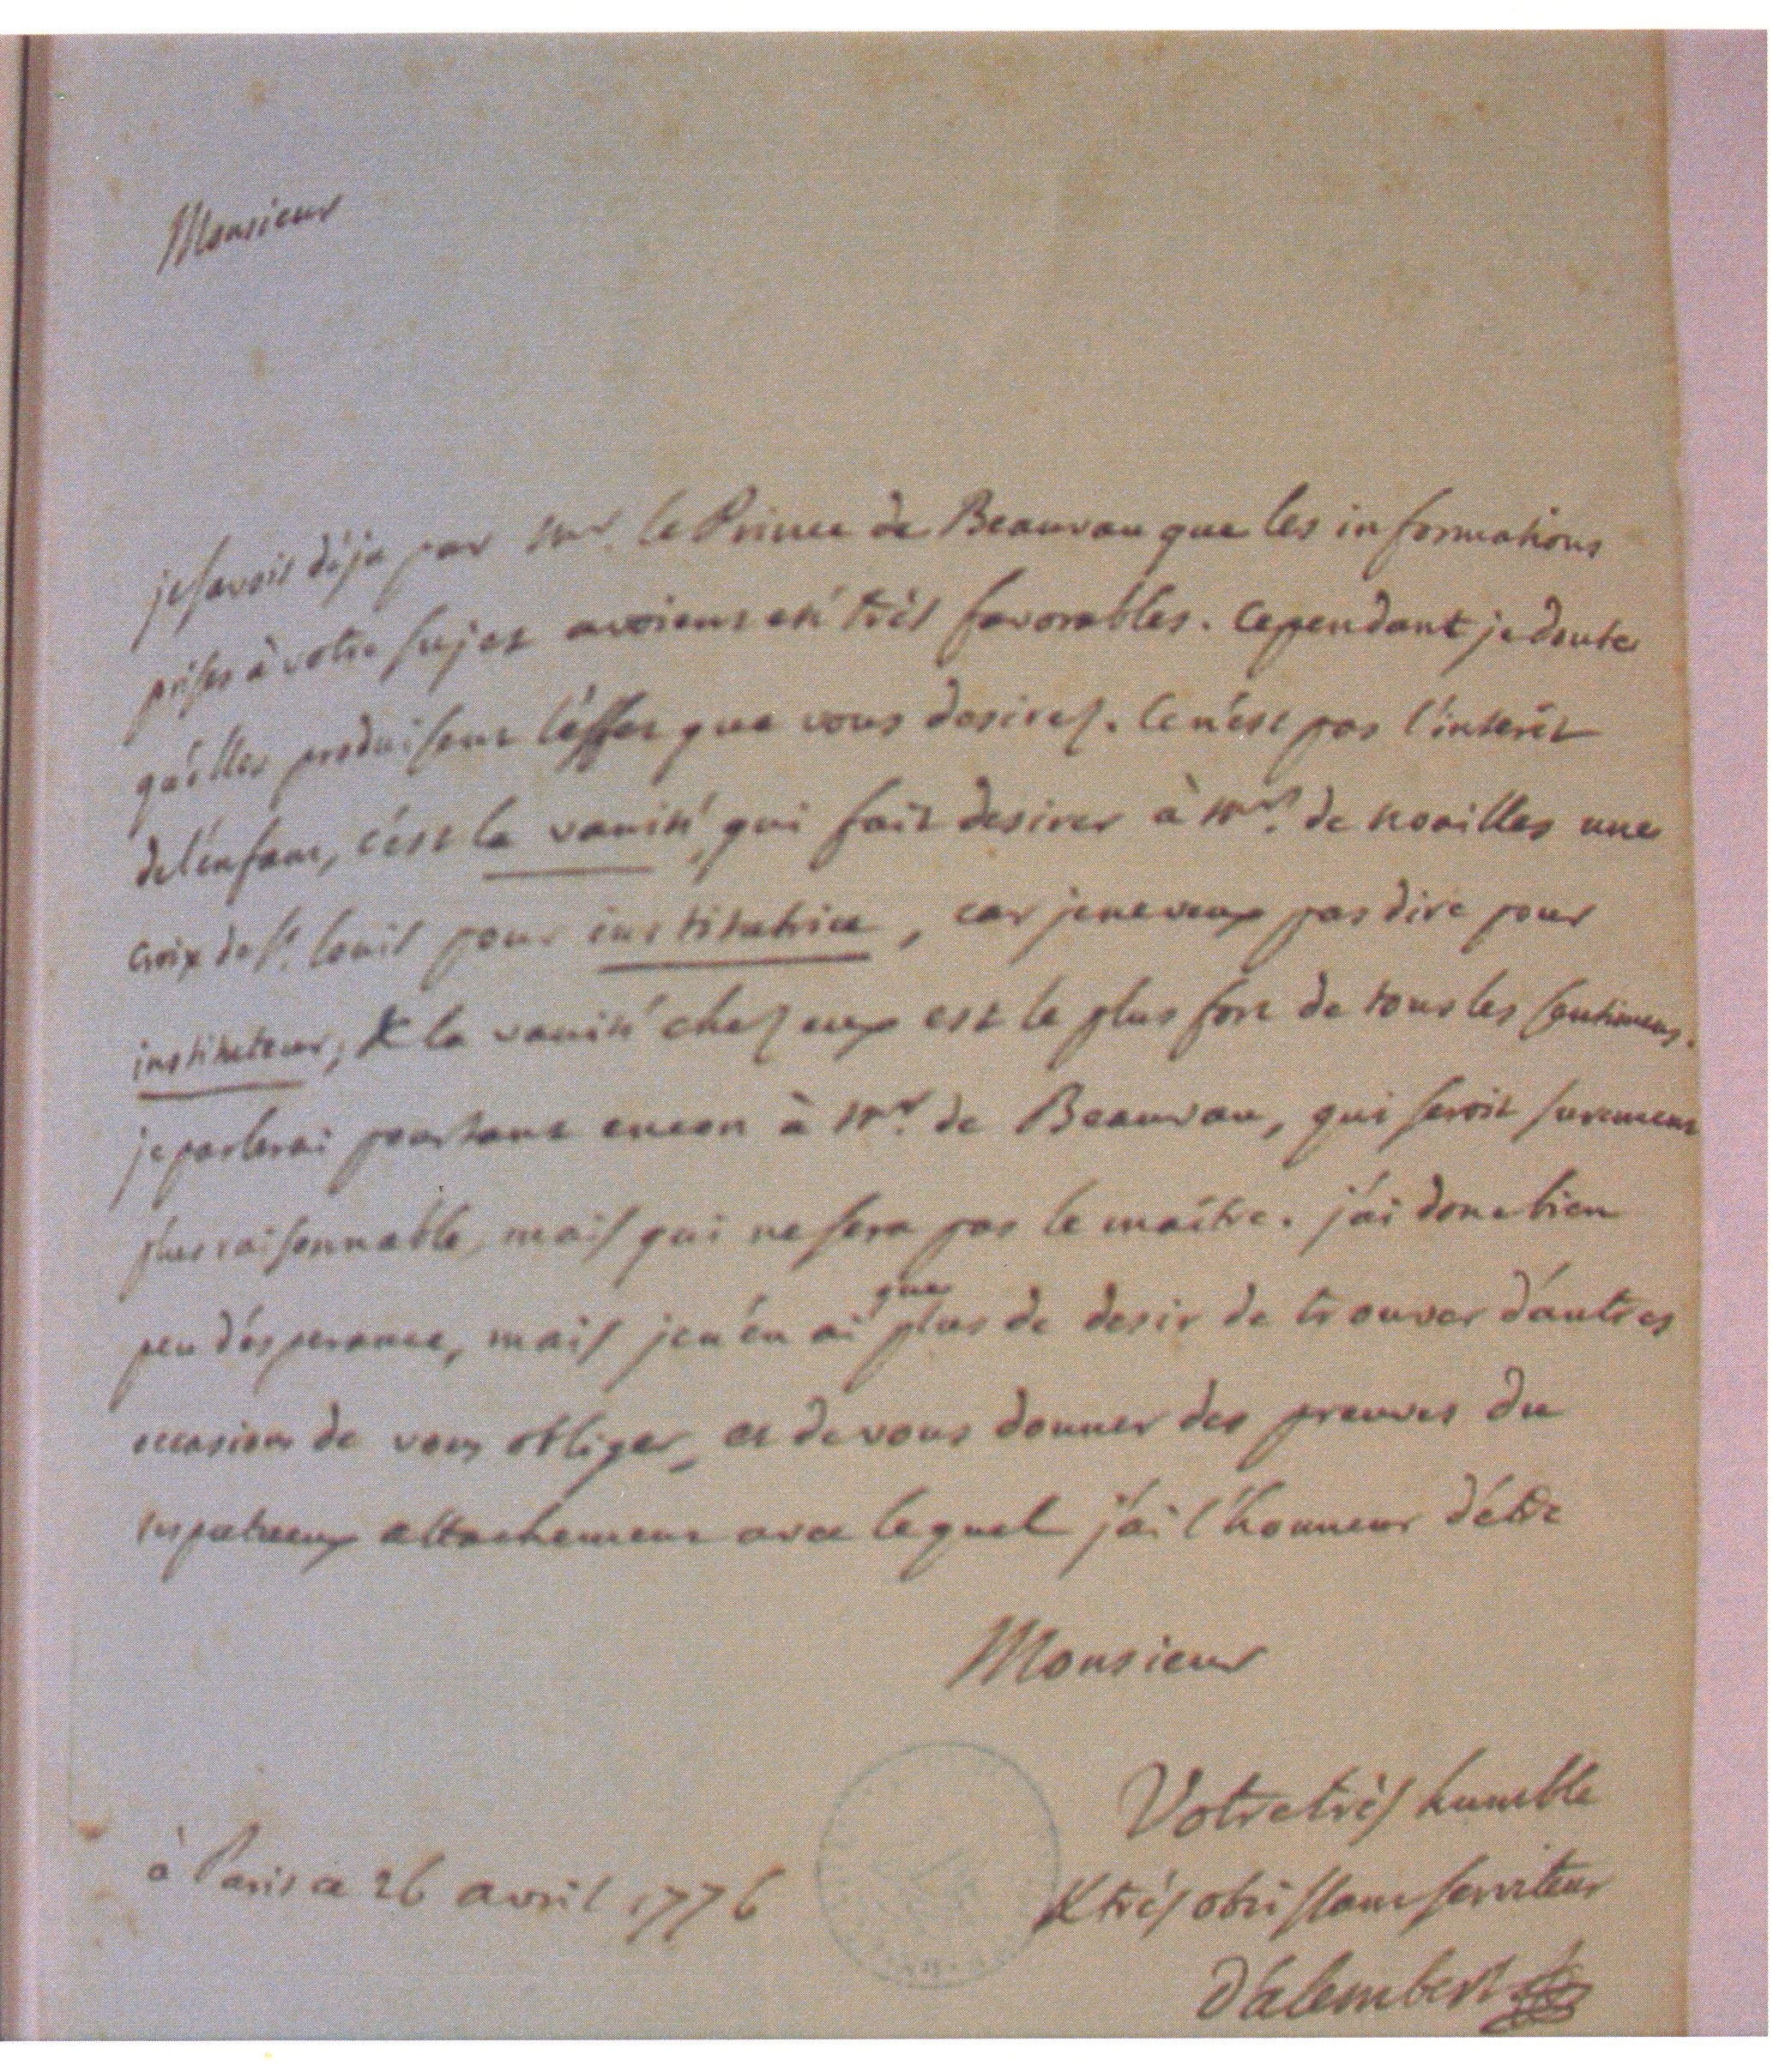 Monsieur
je savois déja par Mr. le Prince de Beauvau que les informations
prises à votre sujet avoient été très favorables. Cependant je doute
qu'elles produisent l'effet que vous desirez. Ce n'est pas l'interêt
de l'enfant, c'est la vanité, qui fait desirer à Mrs. de Noailles une
croix de St. Louis pour institutrice, car je ne veux pas dire pour
instituteur; & la vanité chez eux est le plus fort de tous les sentimens.
je parlerai pourtant encore à Mr. de Beauvau, qui seroit surement
plus raisonnable, mais qui ne sera pas le maître. j'ai donc bien
peu d'esperance, mais je n'en ai que plus de desir de trouver d'autres
occasions de vous obliger, et de vous donner des preuves du
respectueux attachement avec lequel j'ai l'honneur d'être
Monsieur
Votre très humble
& très obéissant serviteur
D'alembert
à Paris ce 26 avril 1776